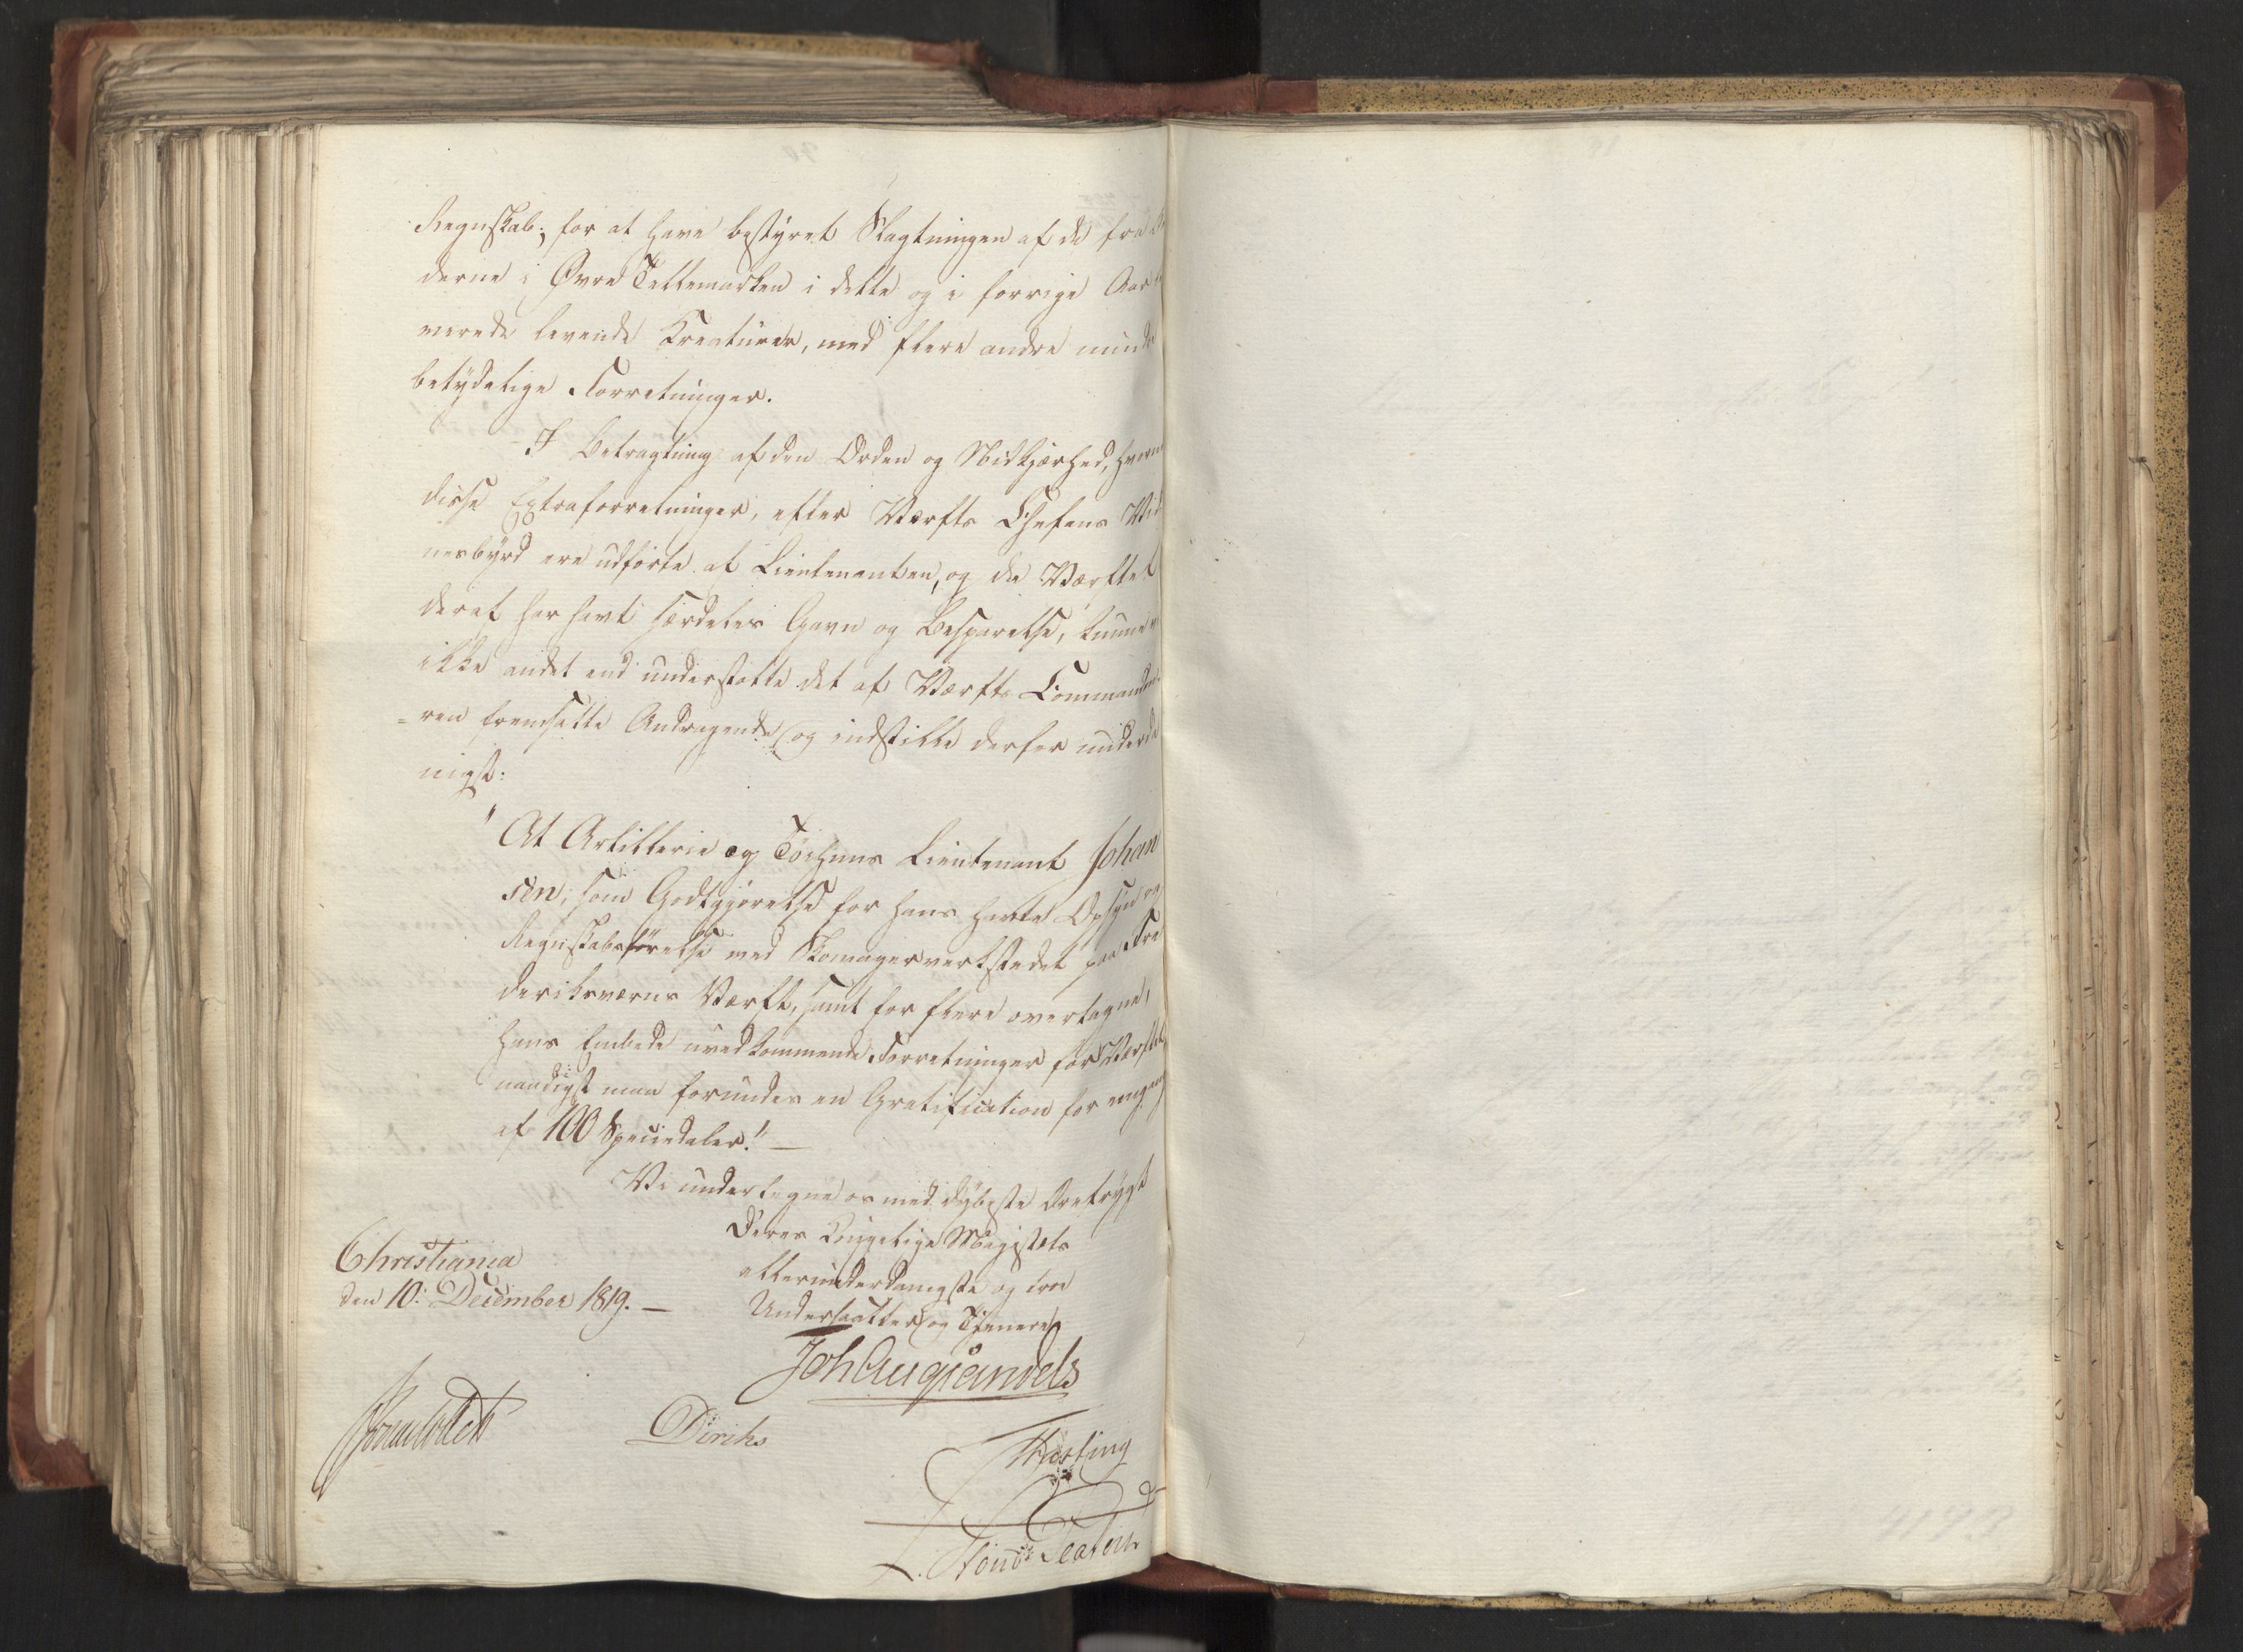 Regnskab; for at have bestyret Slagtningen af de fra
derne i Øvre Tellemarken i dette og i forrige Aar
verede levende Kreaturer, med flere andre mindre
betydelige Forretninger.
I Betragtning af den Orden og Nidkjærhed, hvorm
disse Extraforretninger, efter Værfts Chefens Vid
nesbyrd ere udførte af Lieutenanten, og da Værftet
deraf har havt særdeles Gavn og Besparelse, kunne vi
ikke andet end understøtte det af Værfts Commandeu
=ren fremsatte Andragende og indstille derfor underda
nigst:
"At Artillerie og Tøihuus Lieutenant Johan
sen, som Godtgjørelse for hans havte Opsyn og
Regnskabsførelse med Skomagerverkstedet paa Fre
deriksværns Værft, samt for flere overtagne,
hans Embede uvedkommende Forretninger for Værftet
naadigst maa forundes en Gratification for eengang
af 100 Speciedaler." —
Vi undertegne os med dybeste Ærefrygt
Deres Kongelige Majestæts
allerunderdanigste og troe
Undersaatter og Tjenere
Christiania
den 10: December 1819. —
Joh Aug Sandels
Diriks